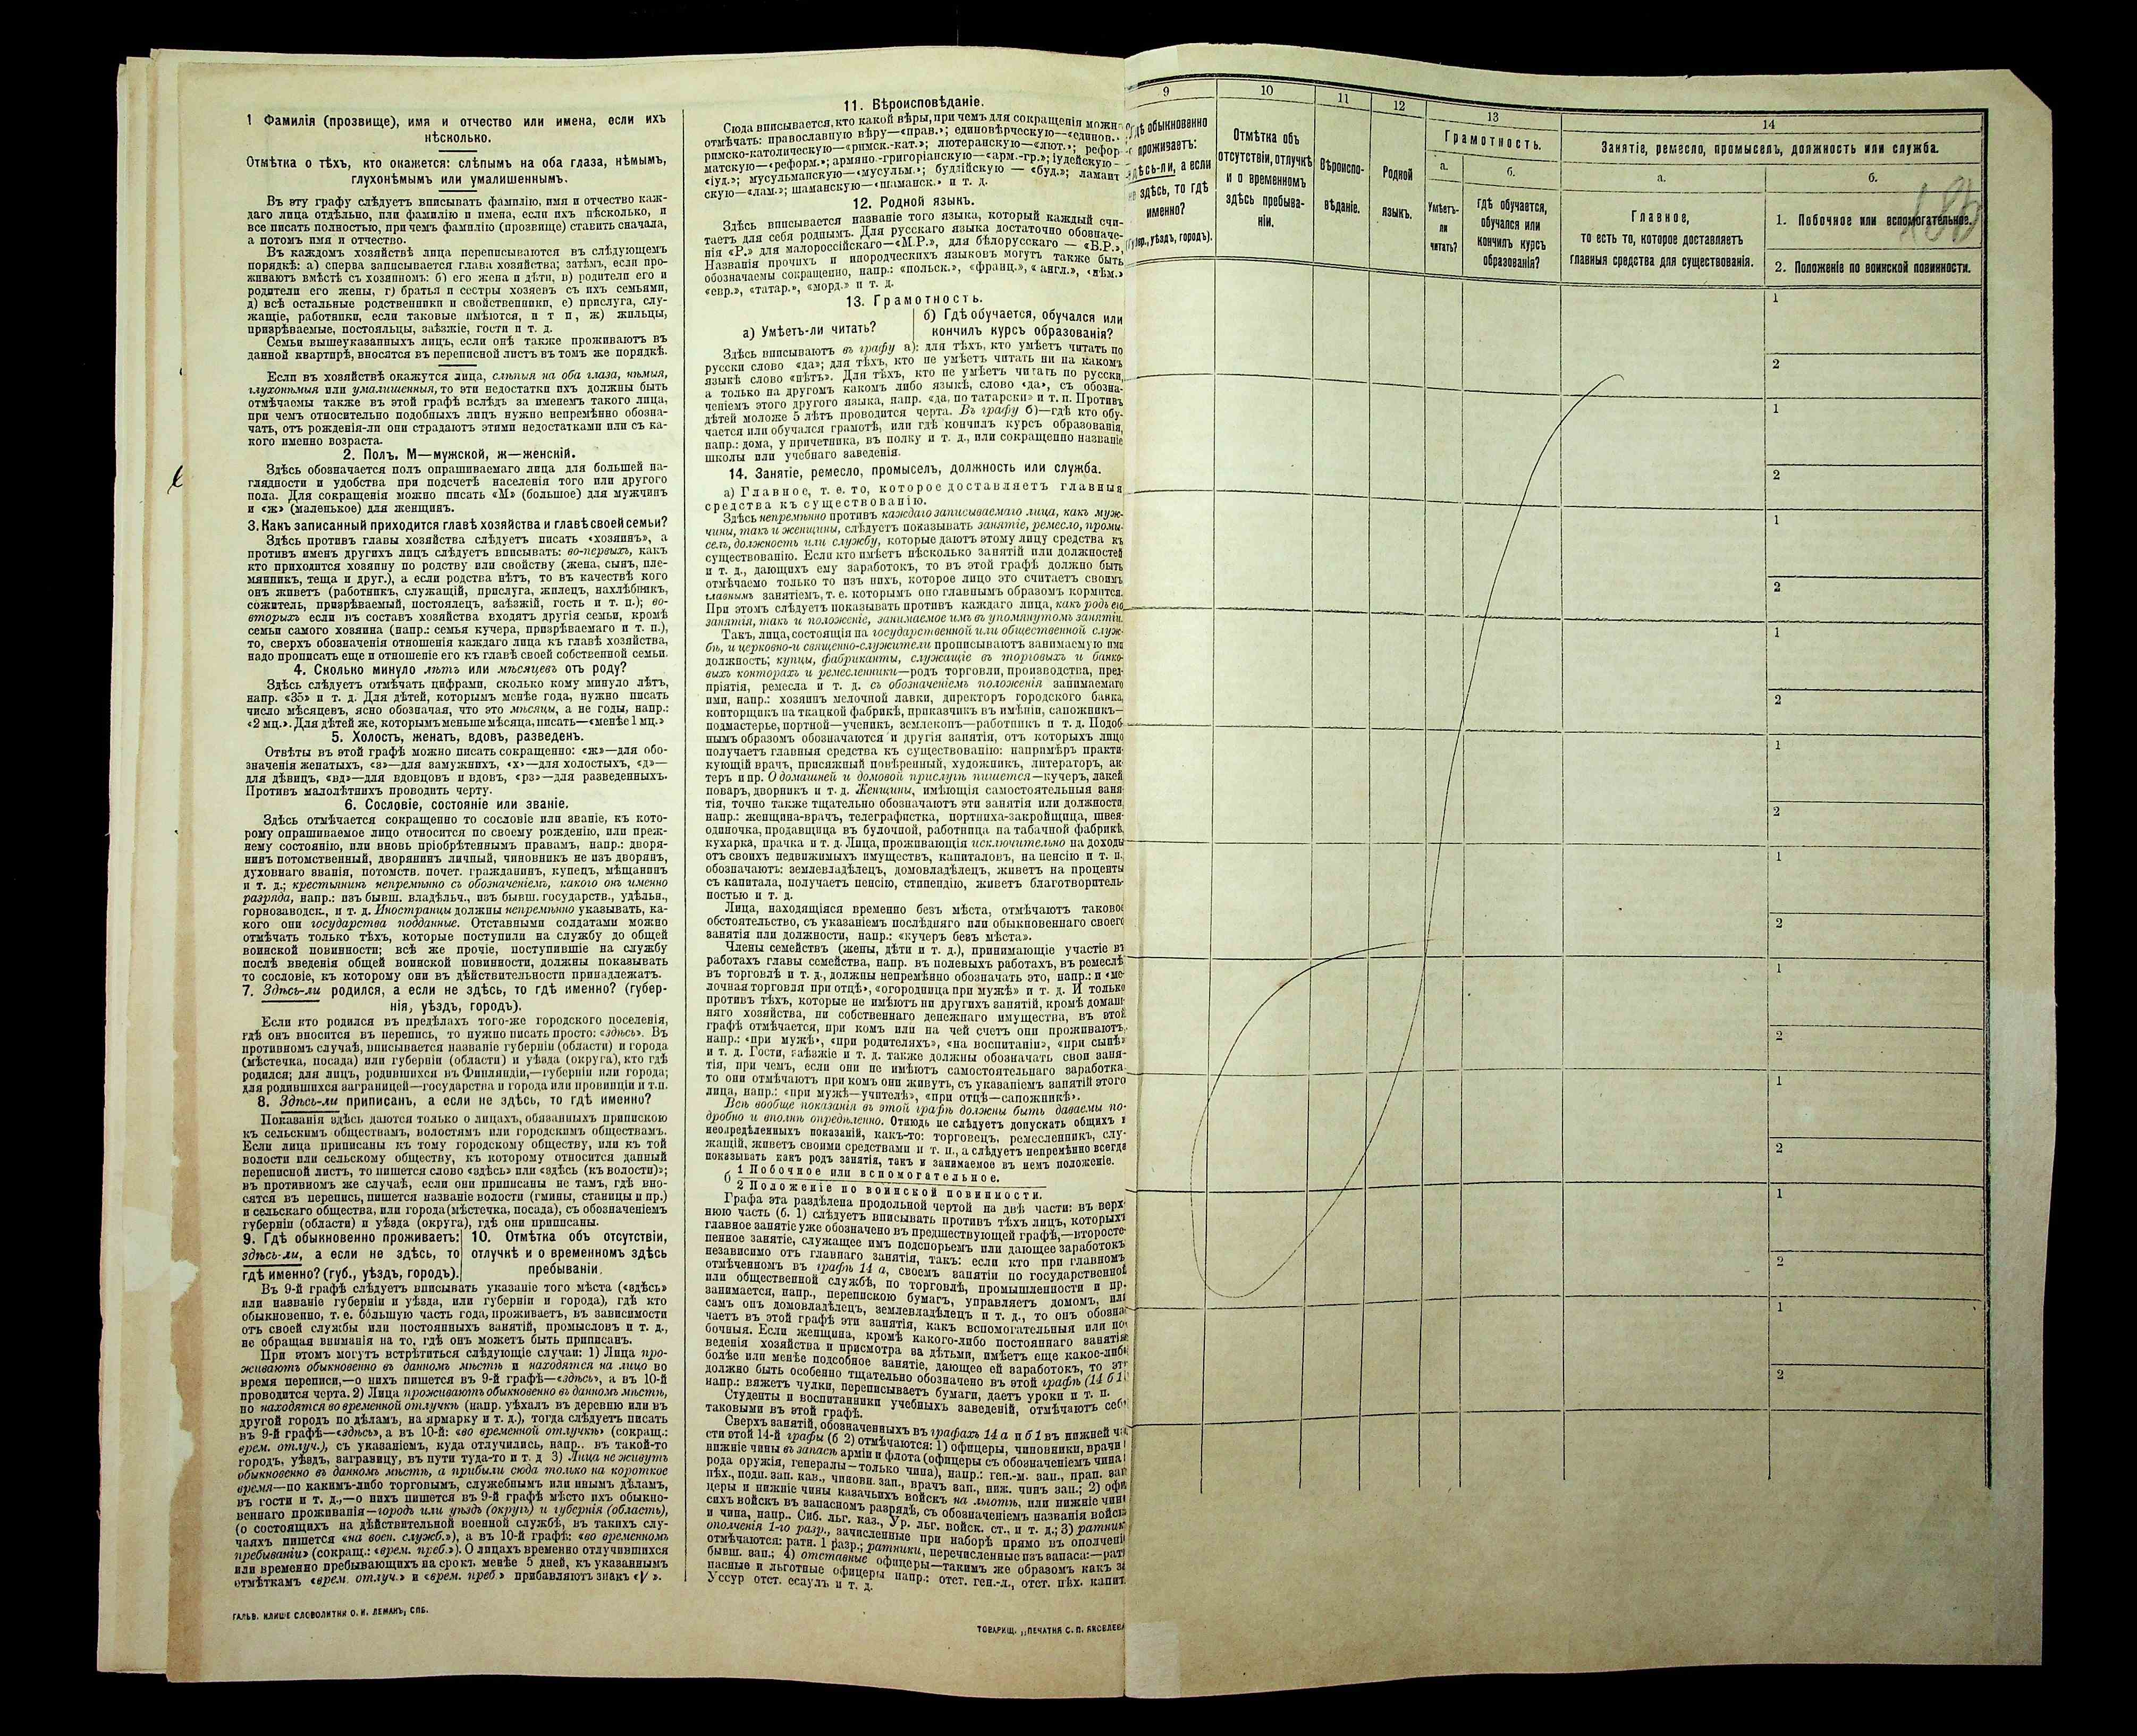 1 Фамилія (прозвище), имя и отчество или имена, если ихъ
нѣсколько.
Отмѣтка о тѣхъ, кто окажется: слѣпымъ на оба глаза, нѣмымъ,
глухонѣмымъ или умалишеннымъ.
Въ эту графу слѣдуетъ вписывать фамилію, имя и отчество каж-
даго лица отдѣльно, или фамилію и имена, если ихъ нѣсколько, и
все писать полностью, при чемъ фамилію (прозвище) ставить сначала,
а потомъ имя и отчество.
Въ каждомъ хозяйствѣ лица переписываются въ слѣдующемъ
порядкѣ: а) сперва записывается глава хозяйства; затѣмъ, если про-
живаютъ вмѣстѣ съ хозяиномъ: б) его жена и дѣти, в) родители его и
родители его жены, г) братья и сестры хозяевъ съ ихъ семьями,
д) всѣ остальные родственники и свойственники, е) прислуга, слу-
жащіе, работники, если таковые имѣются, и т п, ж) жильцы,
призрѣваемые, постояльцы, заѣзжіе, гости и т. д.
Семьи вышеуказанныхъ лицъ, если онѣ также проживаютъ въ
данной квартирѣ, вносятся въ переписной листъ въ томъ же порядкѣ.
Если въ хозяйствѣ окажутся лица, слѣпыя на оба глаза, нѣмыя,
глухонѣмыя или умалишенныя, то эти недостатки ихъ должны быть
отмѣчаемы также въ этой графѣ вслѣдъ за именемъ такого лица,
при чемъ относительно подобныхъ лицъ нужно непремѣнно обозна-
чать, отъ рожденія-ли они страдаютъ этими недостатками или съ ка-
кого именно возраста.
2. Полъ. М—мужской, ж—женскій.
Здѣсь обозначается полъ опрашиваемаго лица для большей на-
глядности и удобства при подсчетѣ населенія того или другого
пола. Для сокращенія можно писать «М» (большое) для мужчинъ
и «ж» (маленькое) для женщинъ.
3. Какъ записанный приходится главѣ хозяйства и главѣ своей семьи?
Здѣсь противъ главы хозяйства слѣдуетъ писать «хозяинъ», а
противъ именъ другихъ лицъ слѣдуетъ вписывать: во-первыхъ, какъ
кто приходится хозяину по родству или свойству (жена, сынъ, пле-
мянникъ, теща и друг.), а если родства нѣтъ, то въ качествѣ кого
онъ живетъ (работникъ, служащій, прислуга, жилецъ, нахлѣбникъ,
сожитель, призрѣваемый, постоялецъ, заѣзжій, гость и т. п.); во-
вторыхъ если въ составъ хозяйства входятъ другія семьи, кромѣ
семьи самого хозяина (напр.: семья кучера, призрѣваемаго и т. п.),
то, сверхъ обозначенія отношенія каждаго лица къ главѣ хозяйства,
надо прописать еще и отношеніе его къ главѣ своей собственной семьи.
4. Сколько минуло лѣтъ или мѣсяцевъ отъ роду?
Здѣсь слѣдуетъ отмѣчать цифрами, сколько кому минуло лѣтъ,
напр. «35» и т. д. Для дѣтей, которымъ менѣе года, нужно писать
число мѣсяцевъ, ясно обозначая, что это мѣсяцы, а не годы, напр.:
«2 мц.». Для дѣтей же, которымъ меньше мѣсяца, писать—«менѣе 1 мц.»
5. Холостъ, женатъ, вдовъ, разведенъ.
Отвѣты въ этой графѣ можно писать сокращенно: «ж»—для обо-
значенія женатыхъ, «з»—для замужнихъ, «х»—для холостыхъ, «д»—
для дѣвицъ, «вд»—для вдовцовъ и вдовъ, «рз»—для разведенныхъ.
Противъ малолѣтнихъ проводить черту.
6. Сословіе, состояніе или званіе.
Здѣсь отмѣчается сокращенно то сословіе или званіе, къ кото-
рому опрашиваемое лицо относится по своему рожденію, или преж-
нему состоянію, или вновь пріобрѣтеннымъ правамъ, напр.: дворя-
нинъ потомственный, дворянинъ личный, чиновникъ не изъ дворянъ,
духовнаго званія, потомств. почет. гражданинъ, купецъ, мѣщанинъ
и т. д.; крестьянинъ непремѣнно съ обозначеніемъ, какого онъ именно
разряда, напр.: изъ бывш. владѣльч., изъ бывш. государств., удѣльн.,
горнозаводск., и т. д. Иностранцы должны непремѣнно указывать, ка-
кого они государства подданные. Отставными солдатами можно
отмѣчать только тѣхъ, которые поступили на службу до общей
воинской повинности; всѣ же прочіе, поступившіе на службу
послѣ введенія общей воинской повинности, должны показывать
то сословіе, къ которому они въ дѣйствительности принадлежатъ.
7. Здѣсь-ли родился, а если не здѣсь, то гдѣ именно? (губер-
нія, уѣздъ, городъ).
Если кто родился въ предѣлахъ того-же городского поселенія,
гдѣ онъ вносится въ перепись, то нужно писать просто: «здѣсь». Въ
противномъ случаѣ, вписывается названіе губерніи (области) и города
(мѣстечка, посада) или губерніи (области) и уѣзда (округа), кто гдѣ
родился; для лицъ, родившихся въ Финляндіи,—губерніи или города;
для родившихся заграницей—государства и города или провинціи и т.п.
8. Здѣсь-ли приписанъ, а если не здѣсь, то гдѣ именно?
Показанія здѣсь даются только о лицахъ, обязанныхъ припискою
къ сельскимъ обществамъ, волостямъ или городскимъ обществамъ.
Если лица приписаны къ тому городскому обществу, или къ той
волости или сельскому обществу, къ которому относится данный
переписной листъ, то пишется слово «здѣсь» или «здѣсь (къ волости)»;
въ противномъ же случаѣ, если они приписаны не тамъ, гдѣ вно-
сятся въ перепись, пишется названіе волости (гмины, станицы и пр.)
и сельскаго общества, или города (мѣстечка, посада), съ обозначеніемъ
губерніи (области) и уѣзда (округа), гдѣ они приписаны.
9. Гдѣ обыкновенно проживаетъ:
здѣсь-ли, а если не здѣсь, то
гдѣ именно? (губ., уѣздъ, городъ).
10. Отмѣтка объ отсутствіи,
отлучкѣ и о временномъ здѣсь
пребываніи.
Въ 9-й графѣ слѣдуетъ вписывать указаніе того мѣста («здѣсь»
или названіе губерніи и уѣзда, или губерніи и города), гдѣ кто
обыкновенно, т. е. бо́льшую часть года, проживаетъ, въ зависимости
отъ своей службы или постоянныхъ занятій, промысловъ и т. д.,
не обращая вниманія на то, гдѣ онъ можетъ быть приписанъ.
При этомъ могутъ встрѣтиться слѣдующіе случаи: 1) Лица про-
живаютъ обыкновенно въ данномъ мѣстѣ и находятся на лицо во
время переписи,—о нихъ пишется въ 9-й графѣ—«здѣсь», а въ 10-й
проводится черта. 2) Лица проживаютъ обыкновенно въ данномъ мѣстѣ,
но находятся во временной отлучкѣ (напр. уѣхалъ въ деревню или въ
другой городъ по дѣламъ, на ярмарку и т. д.), тогда слѣдуетъ писать
въ 9-й графѣ—«здѣсь», а въ 10-й: «во временной отлучкѣ» (сокращ.:
врем. отлуч.), съ указаніемъ, куда отлучились, напр.. въ такой-то
городъ, уѣздъ, заграницу, въ пути туда-то и т. д 3) Лица не живутъ
обыкновенно въ данномъ мѣстѣ, а прибыли сюда только на короткое
время—по какимъ-либо торговымъ, служебнымъ или инымъ дѣламъ,
въ гости и т. д.,—о нихъ пишется въ 9-й графѣ мѣсто ихъ обыкно-
веннаго проживанія—городъ или уѣздъ (округъ) и губернія (область),
(о состоящихъ на дѣйствительной военной службѣ, въ такихъ слу-
чаяхъ пишется «на воен. служб.»), а въ 10-й графѣ: «во временномъ
пребываніи» (сокращ.: «врем. преб.»). О лицахъ временно отлучившихся
или временно пребывающихъ на срокъ менѣе 5 дней, къ указаннымъ
отмѣткамъ «врем. отлуч.» и «врем. преб.» прибавляютъ знакъ «V».
ГАЛЬВ. КЛИШЕ СЛОВОЛИТНИ О. И. ЛЕМАНЪ, СПБ.
11. Вѣроисповѣданіе.
Сюда вписывается, кто какой вѣры, при чемъ для сокращенія можно
отмѣчать: православную вѣру—«прав.»; единовѣрческую—«единов.»
римско-католическую—«римск.-кат.»; лютеранскую—«лют.»; рефор
матскую—«реформ.»; армяно-григоріанскую—«арм.-гр.»; іудейскую—
«іуд.»; мусульманскую—«мусульм.»; будлійскую — «буд.»; ламаит
скую—«лам.»; шаманскую—«шаманск.» и т. д.
12. Родной языкъ.
Здѣсь вписывается названіе того языка, который каждый счи-
таетъ для себя роднымъ. Для русскаго языка достаточно обозначе-
нія «Р.» для малороссійскаго—«М.Р.», для бѣлорусскаго — «Б.Р.»,
Названія прочихъ и инородческихъ языковъ могутъ также быть
обозначаемы сокращенно, напр.: «польск.», «франц.», «англ.», «нѣм.»
«евр.», «татар.», «морд.» и т. д.
13. Грамотность.
а) Умѣетъ-ли читать?
б) Гдѣ обучается, обучался или
кончилъ курсъ образованія?
Здѣсь вписываютъ въ графу а): для тѣхъ, кто умѣетъ читать по
русски слово «да»; для тѣхъ, кто не умѣетъ читать ни на какомъ
языкѣ слово «нѣтъ». Для тѣхъ, кто не умѣетъ читать по русски,
а только на другомъ какомъ либо языкѣ, слово «да», съ обозна-
ченіемъ этого другого языка, напр. «да, по татарски» и т. п. Противъ
дѣтей моложе 5 лѣтъ проводится черта. Въ графу б)—гдѣ кто обу-
чается или обучался грамотѣ, или гдѣ кончилъ курсъ образованія,
напр.: дома, у причетника, въ полку и т. д., или сокращенно названіе
школы или учебнаго заведенія.
14. Занятіе, ремесло, промыселъ, должность или служба.
а) Главное, т. е. то, которое доставляетъ главныя
средства къ существованію.
Здѣсь непремѣнно противъ каждаго записываемаго лица, какъ муж-
чины, такъ и женщины, слѣдуетъ показывать занятіе, ремесло, промы-
селъ, должность или службу, которые даютъ этому лицу средства къ
существованію. Если кто имѣетъ нѣсколько занятій или должностей
и т. д., дающихъ ему заработокъ, то въ этой графѣ должно быть
отмѣчаемо только то изъ нихъ, которое лицо это считаетъ своимъ
главнымъ занятіемъ, т. е. которымъ оно главнымъ образомъ кормится.
При этомъ слѣдуетъ показывать противъ каждаго лица, какъ родъ его
занятія, такъ и положеніе, занимаемое имъ въ упомянутомъ занятіи.
Такъ, лица, состоящія на государственной или общественной служ-
бѣ, и церковно-и священно-служители прописываютъ занимаемую ими
должность; купцы, фабриканты, служащіе въ торговыхъ и банко-
выхъ конторахъ и ремесленники—родъ торговли, производства, пред-
пріятія, ремесла и т. д. съ обозначеніемъ положенія занимаемаго
ими, напр.: хозяинъ мелочной лавки, директоръ городского банка,
конторщикъ на ткацкой фабрикѣ, приказчикъ въ имѣніи, сапожникъ—
подмастерье, портной—ученикъ, землекопъ—работникъ и т. д. Подоб-
нымъ образомъ обозначаются и другія занятія, отъ которыхъ лицо
получаетъ главныя средства къ существованію: напримѣръ практи-
кующій врачъ, присяжный повѣренный, художникъ, литераторъ, ак-
теръ и пр. О домашней и домовой прислугѣ пишется—кучеръ, лакей,
поваръ, дворникъ и т. д. Женщины, имѣющія самостоятельныя заня-
тія, точно также тщательно обозначаютъ эти занятія или должности,
напр.: женщина-врачъ, телеграфистка, портниха-закройщица, швея-
одиночка, продавщица въ булочной, работница на табачной фабрикѣ,
кухарка, прачка и т. д. Лица, проживающія исключительно на доходы
отъ своихъ недвижимыхъ имуществъ, капиталовъ, на пенсію и т. п.,
обозначаютъ: землевладѣлецъ, домовладѣлецъ, живетъ на проценты
съ капитала, получаетъ пенсію, стипендію, живетъ благотворитель-
ностью и т. д.
Лица, находящіяся временно безъ мѣста, отмѣчаютъ таковое
обстоятельство, съ указаніемъ послѣдняго или обыкновеннаго своего
занятія или должности, напр.: «кучеръ безъ мѣста».
Члены семействъ (жены, дѣти и т. д.), принимающіе участіе въ
работахъ главы семейства, напр. въ полевыхъ работахъ, въ ремеслѣ
въ торговлѣ и т. д., должны непремѣнно обозначать это, напр.: и «ме-
лочная торговля при отцѣ», «огородница при мужѣ» и т. д. И только
противъ тѣхъ, которые не имѣютъ ни другихъ занятій, кромѣ домаш-
няго хозяйства, ни собственнаго денежнаго имущества, въ этой
графѣ отмѣчается, при комъ или на чей счетъ они проживаютъ,
напр.: «при мужѣ», «при родителяхъ», «на воспитаніи», «при сынѣ»
и т. д. Гости, заѣзжіе и т. д. также должны обозначать свои заня-
тія, при чемъ, если они не имѣютъ самостоятельнаго заработка
то они отмѣчаютъ при комъ они живутъ, съ указаніемъ занятій этого
лица, напр.: «при мужѣ—учителѣ», «при отцѣ—сапожникѣ».
Всѣ вообще показанія въ этой графѣ должны быть даваемы по-
дробно и вполнѣ опредѣленно. Отнюдь не слѣдуетъ допускать общихъ и
неопредѣленныхъ показаній, какъ-то: торговецъ, ремесленникъ, слу-
жащій, живетъ своими средствами и т. п., а слѣдуетъ непремѣнно всегда
показывать какъ родъ занятія, такъ и занимаемое въ немъ положеніе.
б 1 Побочное или вспомогательное.
2 Положеніе по воинской повинности.
Графа эта раздѣлена продольной чертой на двѣ части: въ верх-
нюю часть (б. 1) слѣдуетъ вписывать противъ тѣхъ лицъ, которыхъ
главное занятіе уже обозначено въ предшествующей графѣ,—второсте-
пенное занятіе, служащее имъ подспорьемъ или дающее заработокъ
независимо отъ главнаго занятія, такъ: если кто при главномъ
отмѣченномъ въ графѣ 14 а, своемъ занятіи по государственной
или общественной службѣ, по торговлѣ, промышленности и пр.
занимается, напр., перепискою бумагъ, управляетъ домомъ, или
самъ онъ домовладѣлецъ, землевладѣлецъ и т. д., то онъ обозна-
чаетъ въ этой графѣ эти занятія, какъ вспомогательныя или по-
бочныя. Если женщина, кромѣ какого-либо постояннаго занятія
веденія хозяйства и присмотра за дѣтьми, имѣетъ еще какое-либо
болѣе или менѣе подсобное занятіе, дающее ей заработокъ, то это
должно быть особенно тщательно обозначено въ этой графѣ (14 б 1)
напр.: вяжетъ чулки, переписываетъ бумаги, даетъ уроки и т. п.
Студенты и воспитанники учебныхъ заведеній, отмѣчаютъ себя
таковыми въ этой графѣ.
Сверхъ занятій, обозначенныхъ въ графахъ 14 а и б 1 въ нижней ча-
сти этой 14-й графы (б 2) отмѣчаются: 1) офицеры, чиновники, врачи и
нижніе чины въ запасѣ арміи и флота (офицеры съ обозначеніемъ чина и
рода оружія, генералы—только чина), напр.: ген.-м. зап., прап. зап.
пѣх., подп. зап. кав., чиновн. зап., врачъ зап., ниж. чинъ зап.; 2) офи
церы и нижніе чины казачьихъ войскъ на льготѣ, или нижніе чины
сихъ войскъ въ запасномъ разрядѣ, съ обозначеніемъ названія войска
и чина, напр.. Сиб. льг. каз., Ур. льг. войск. ст., и т. д.; 3) ратники
ополченія 1-го разр., зачисленные при наборѣ прямо въ ополченіе
отмѣчаются: ратн. 1 разр.; ратники, перечисленные изъ запаса:—рат
бывш. зап.; 4) отставные офицеры—такимъ же образомъ какъ за
пасные и льготные офицеры напр.: отст. ген.-л., отст. пѣх. капит.
Уссур отст. есаулъ и т. д.
ТОВАРИЩ. „ПЕЧАТНЯ С. П. ЯКОВЛЕВА
9
Гдѣ обыкновенно
проживаетъ:
здѣсь-ли, а если
не здѣсь, то гдѣ
именно?
(губер., уѣздъ, городъ).
10
Отмѣтка объ
отсутствіи, отлучкѣ
и о временномъ
здѣсь пребыва-
ніи.
11
Вѣроиспо-
вѣданіе.
12
Родной
языкъ.
13
Грамотность.
а.
Умѣетъ-
ли
читать?
б.
гдѣ обучается,
обучался или
кончилъ курсъ
образованія?
14
Занятіе, ремесло, промыселъ, должность или служба.
а.
Главное,
то есть то, которое доставляетъ
главныя средства для существованія.
б.
1. Побочное или вспомогательное.
2. Положеніе по воинской повинности.
1
2
1
2
1
2
1
2
1
2
1
2
1
2
1
2
1
2
1
2